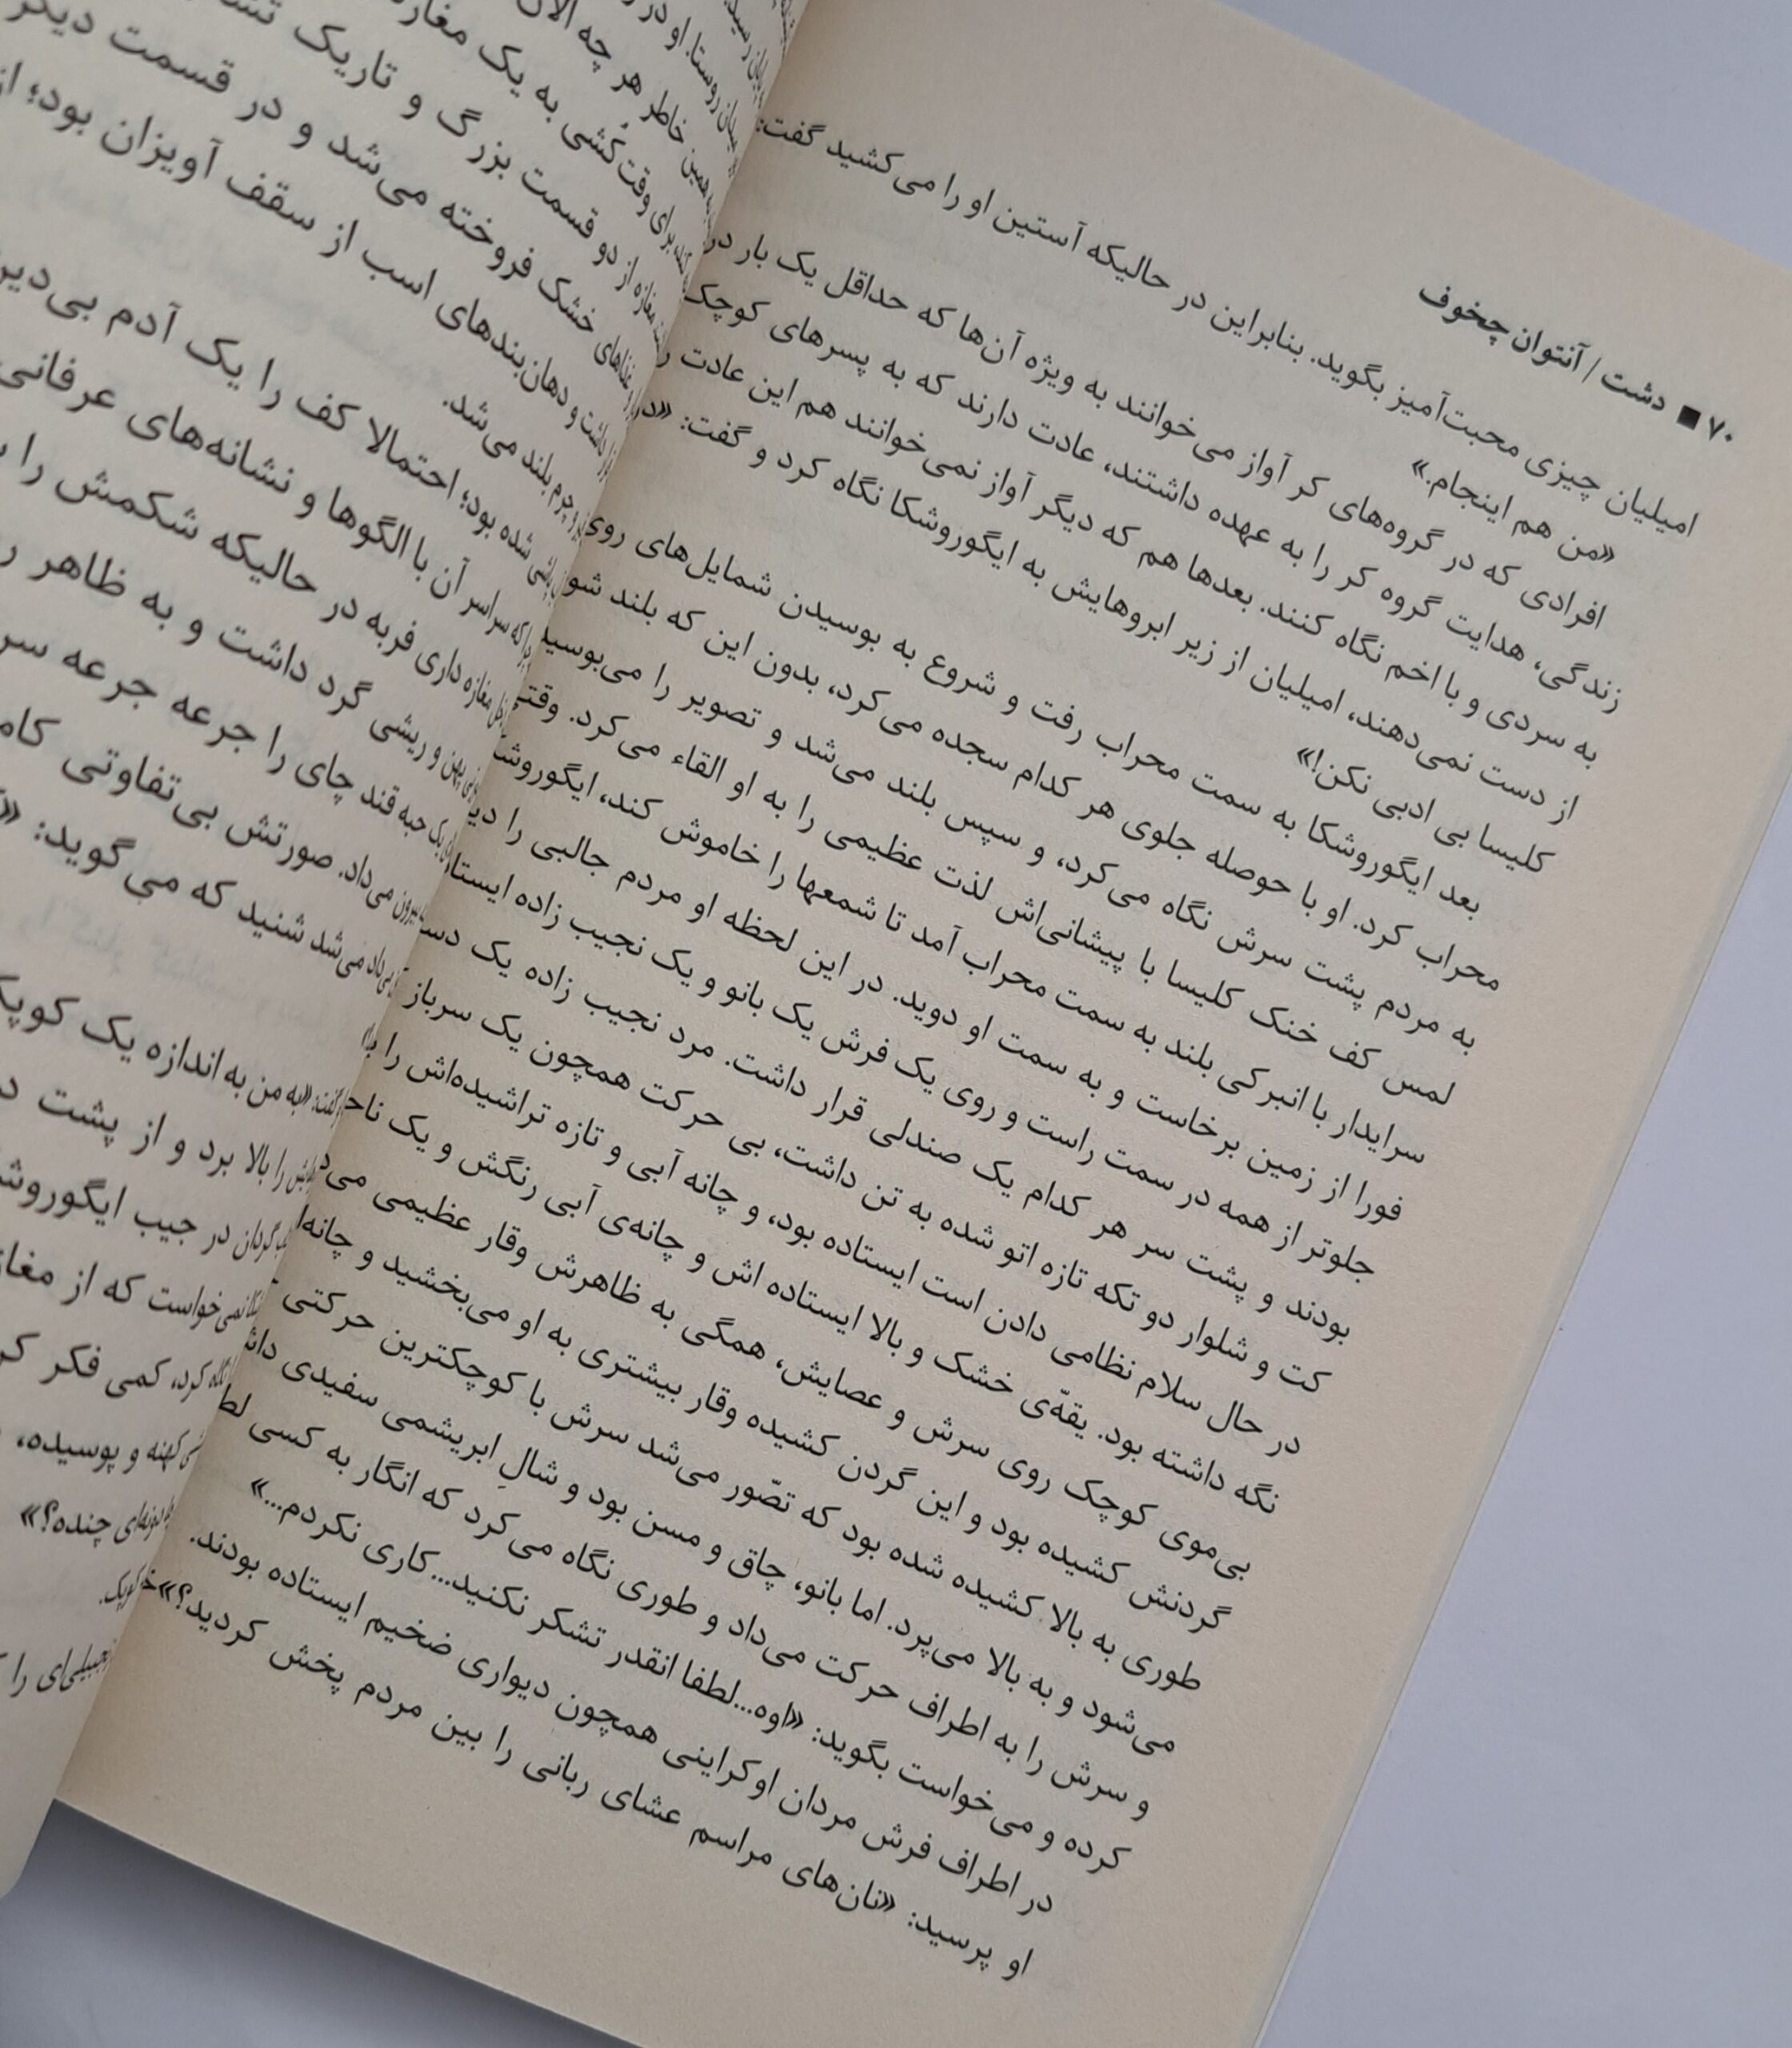 ۷۰ ■ دشت / آنتوان چخوف
امیلیان چیزی محبت‌آمیز بگوید. بنابراین در حالیکه آستین او را می‌کشید گفت:
«من هم اینجام.»
افرادی که در گروه‌های کر آواز می‌خوانند به ویژه آن‌ها که حداقل یک بار در
زندگی، هدایت گروه کر را به عهده داشتند، عادت دارند که به پسرهای کوچک
به سردی و با اخم نگاه کنند. بعدها هم که دیگر آواز نمی‌خوانند هم این عادت را
از دست نمی‌دهند، امیلیان از زیر ابروهایش به ایگوروشکا نگاه کرد و گفت: «در
کلیسا بی ادبی نکن!»
بعد ایگوروشکا به سمت محراب رفت و شروع به بوسیدن شمایل‌های روی
محراب کرد. او با حوصله جلوی هر کدام سجده می‌کرد، بدون این که بلند شو
به مردم پشت سرش نگاه می‌کرد، و سپس بلند می‌شد و تصویر را می‌بوسید
لمس کف خنک کلیسا با پیشانی‌اش لذت عظیمی را به او القاء می‌کرد. وقتی
سرایدار با انبرکی بلند به سمت محراب آمد تا شمعها را خاموش کند، ایگوروشکا
فورا از زمین برخاست و به سمت او دوید. در این لحظه او مردم جالبی را دید
جلوتر از همه در سمت راست و روی یک فرش یک بانو و یک نجیب زاده ایستاده
بودند و پشت سر هر کدام یک صندلی قرار داشت. مرد نجیب زاده یک دست
کت و شلوار دو تکه تازه اتو شده به تن داشت، بی حرکت همچون یک سرباز
در حال سلام نظامی دادن است ایستاده بود، و چانه آبی و تازه تراشیده‌اش را بالا
نگه داشته بود. یقه‌ی خشک و بالا ایستاده اش و چانه‌ی آبی رنگش و یک ناحیه
بی‌موی کوچک روی سرش و عصایش، همگی به ظاهرش وقار عظیمی می‌
گردنش کشیده بود و این گردن کشیده وقار بیشتری به او می‌بخشید و چانه‌
طوری به بالا کشیده شده بود که تصّور می‌شد سرش با کوچکترین حرکتی
می‌شود و به بالا می‌پرد. اما بانو، چاق و مسن بود و شالِ ابریشمی سفیدی داشت
و سرش را به اطراف حرکت می‌داد و طوری نگاه می‌کرد که انگار به کسی لطف
کرده و می‌خواست بگوید: «اوه...لطفا انقدر تشکر نکنید...کاری نکردم...»
در اطراف فرش مردان اوکراینی همچون دیواری ضخیم ایستاده بودند.
او پرسید: «نان‌های مراسم عشای ربانی را بین مردم پخش کردید؟»
خاطر هر چه الان
برای وقت‌کُشی به یک مغازه
مغازه از دو قسمت بزرگ و تاریک
غذاهای خشک فروخته می‌شد و در قسمت دیگر
داشت و دهان‌بندهای اسب از سقف آویزان بود؛ از
چرم بلند می‌شد.
شده بود؛ احتمالا کف را یک آدم بی‌دین
که سراسر آن با الگوها و نشانه‌های عرفانی
مغازه داری فربه در حالیکه شکمش را
پهن و ریشی گرد داشت و به ظاهر
یک حبه قند چای را جرعه جرعه سر
بیرون می‌داد. صورتش بی‌تفاوتی
می‌شد شنید که می‌گوید:
گفت: «به من به اندازه یک کوپک
را بالا برد و از پشت
در جیب ایگوروشکا
نمی‌خواست که از مغازه
کرد، کمی فکر کرد
کهنه و پوسیده،
چنده؟»
کوپک.